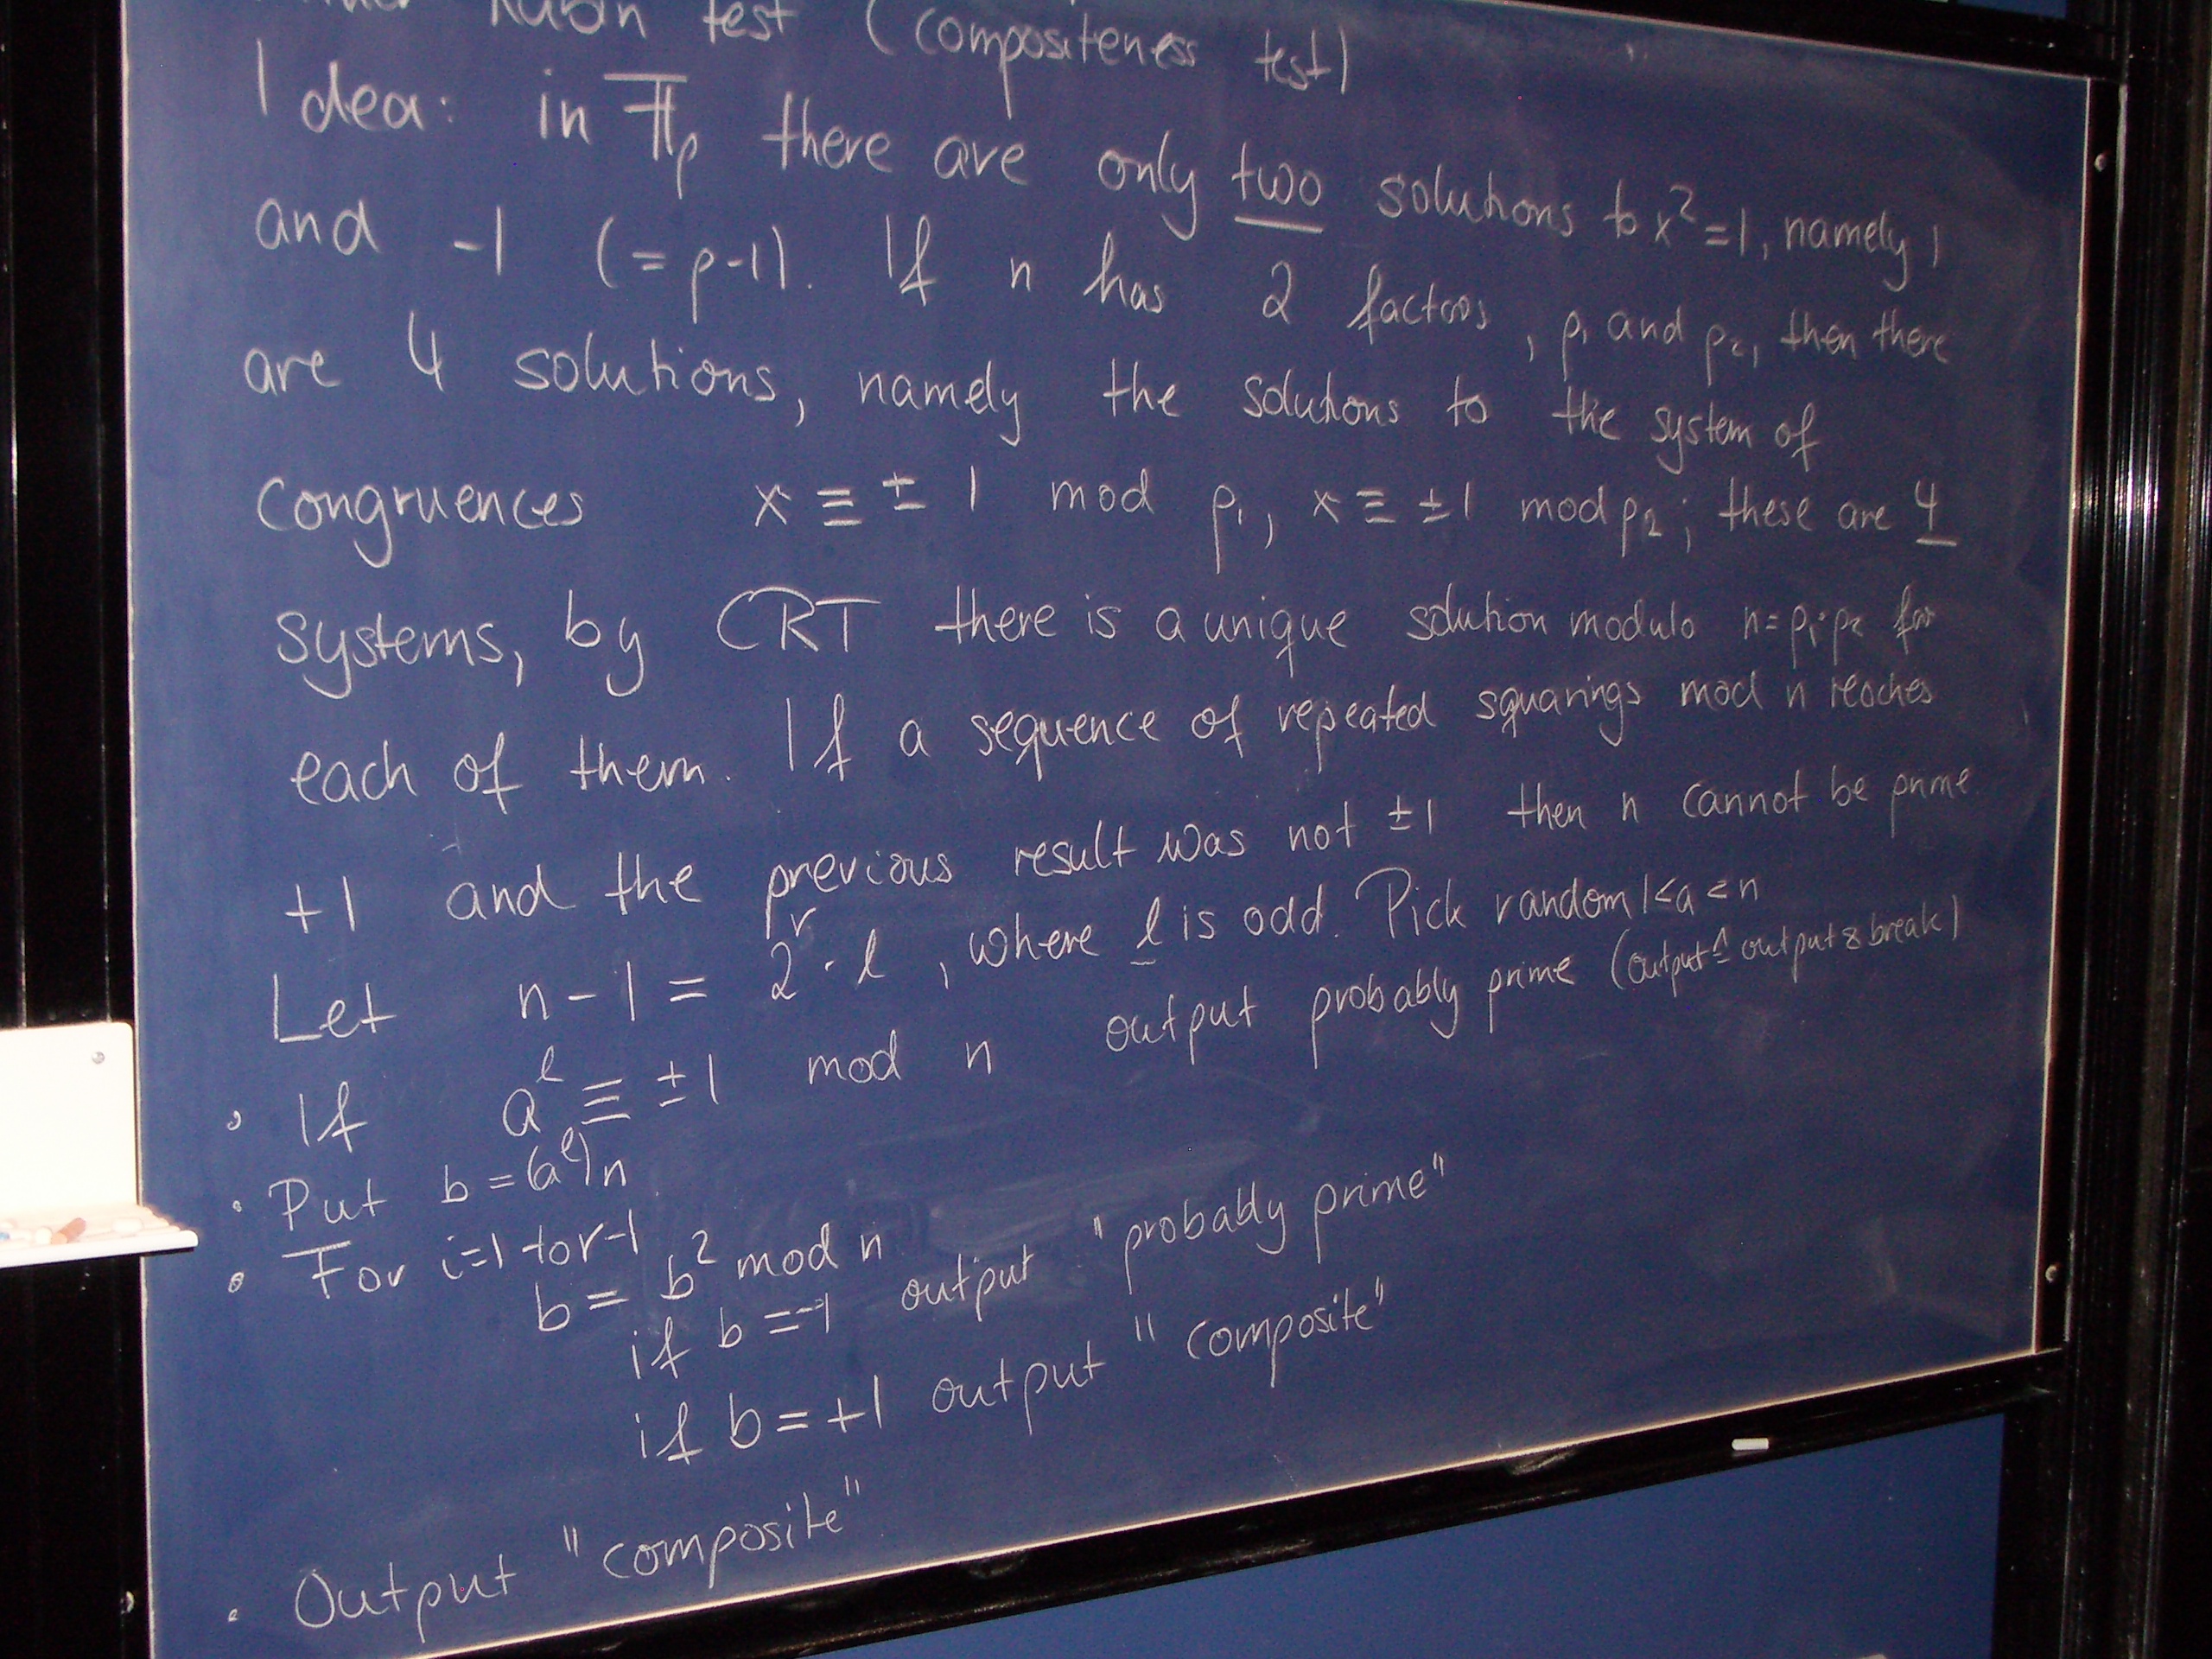 Rabin test (compositeness test)
Idea: in 𝔽p there are only two solutions to x² = 1, namely 1
and -1 (= p-1). If n has 2 factors, p₁ and p₂, then there
are 4 solutions, namely the solutions to the system of
congruences x ≡ ± 1 mod p₁, x ≡ ±1 mod p₂; these are 4
systems, by CRT there is a unique solution modulo n=p₁·p₂ for
each of them. If a sequence of repeated squarings mod n reaches
+1 and the previous result was not ±1 then n cannot be prime.
Let n-1 = 2^r · l, where l is odd. Pick random 1<a<n
• If a^l ≡ ±1 mod n output probably prime (output ≙ output & break)
• Put b = (a^l)n
• For i=1 to r-1
b = b² mod n
if b = -1 output "probably prime"
if b = +1 output "composite"
• Output "composite"